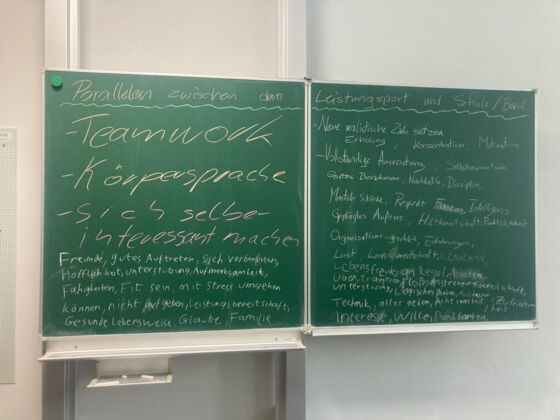 Parallelen zwischen dem
-Teamwork
-Körpersprache
-Sich selbe-
interessant machen
Freunde, gutes Auftreten, Sich vorbereiten,
Höfflichkeit, Unterstützung, Aufmerksamkeit,
Fähigkeiten, Fit sein, mit Stress umgehen
können, nicht aufgeben, Leistungsbereitschaft,
Gesunde Lebensweise, Glaube, Familie
Leistungssport und Schule/Beruf
-Neue realistische Ziele setzen
Erholung, Konzentration, Motivation
-Vollständige Ausrüstung, Selbstbewusstsein
Gutes Benehmen, Nachhilfe, Disziplin,
Mentale Stärke, Respekt Intelligenz
Gepflegtes Auftreten, Hilfsbereitschaft, Pünktlichkeit
Organisations-geschick, Erfahrungen,
Lust, Lernbereitschaft,
Lebensfreude,
Logisches
Technik, alles geben, Achtsamkeit,
Interesse, Wille, Dankbarkeit,